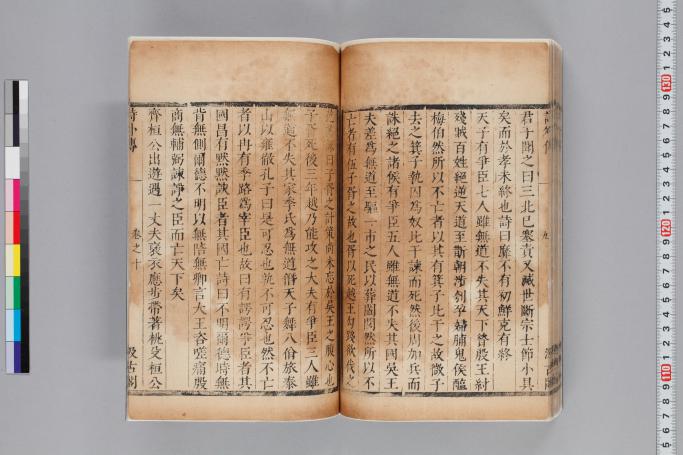 君子聞之曰三北已塞責又滅世斷宗士節小具
矣而於孝未終也詩曰靡不有初鮮克有終
天子有爭臣七人雖無道不失其天下昔殷王紂
殘賊百姓絕逆天道至斮朝涉刳孕婦脯鬼侯醢
梅伯然所以不亡者以其有箕子比干之故微子
去之箕子執囚爲奴比干諫而死然後周加兵而
誅絕之諸侯有爭臣五人雖無道不失其國吳王
夫差爲無道至驅一市之民以葬闔閭然所以不
亡者有伍子胥之故也胥以死越王勾踐欲伐之
諫曰子胥之計策尚未忘於吳王之腹心也
子胥死後三年越乃能攻之大夫有爭臣三人雖
無道不失其家季氏爲無道僭天子舞八佾旅泰
山以雍徹孔子曰是可忍也孰不可忍也然不亡
者以冉有季路爲宰臣也故曰有諤諤爭臣者其
國昌有默默諛臣者其國亡詩曰不明爾德時無
背無側爾德不明以無陪無卿言大王咨嗟痛殷
商無輔弼諫諍之臣而亡天下矣
齊桓公出遊遇一丈夫裒衣應步帶著桃殳桓公
詩外傳 卷之十 汲古閣
130
120
110